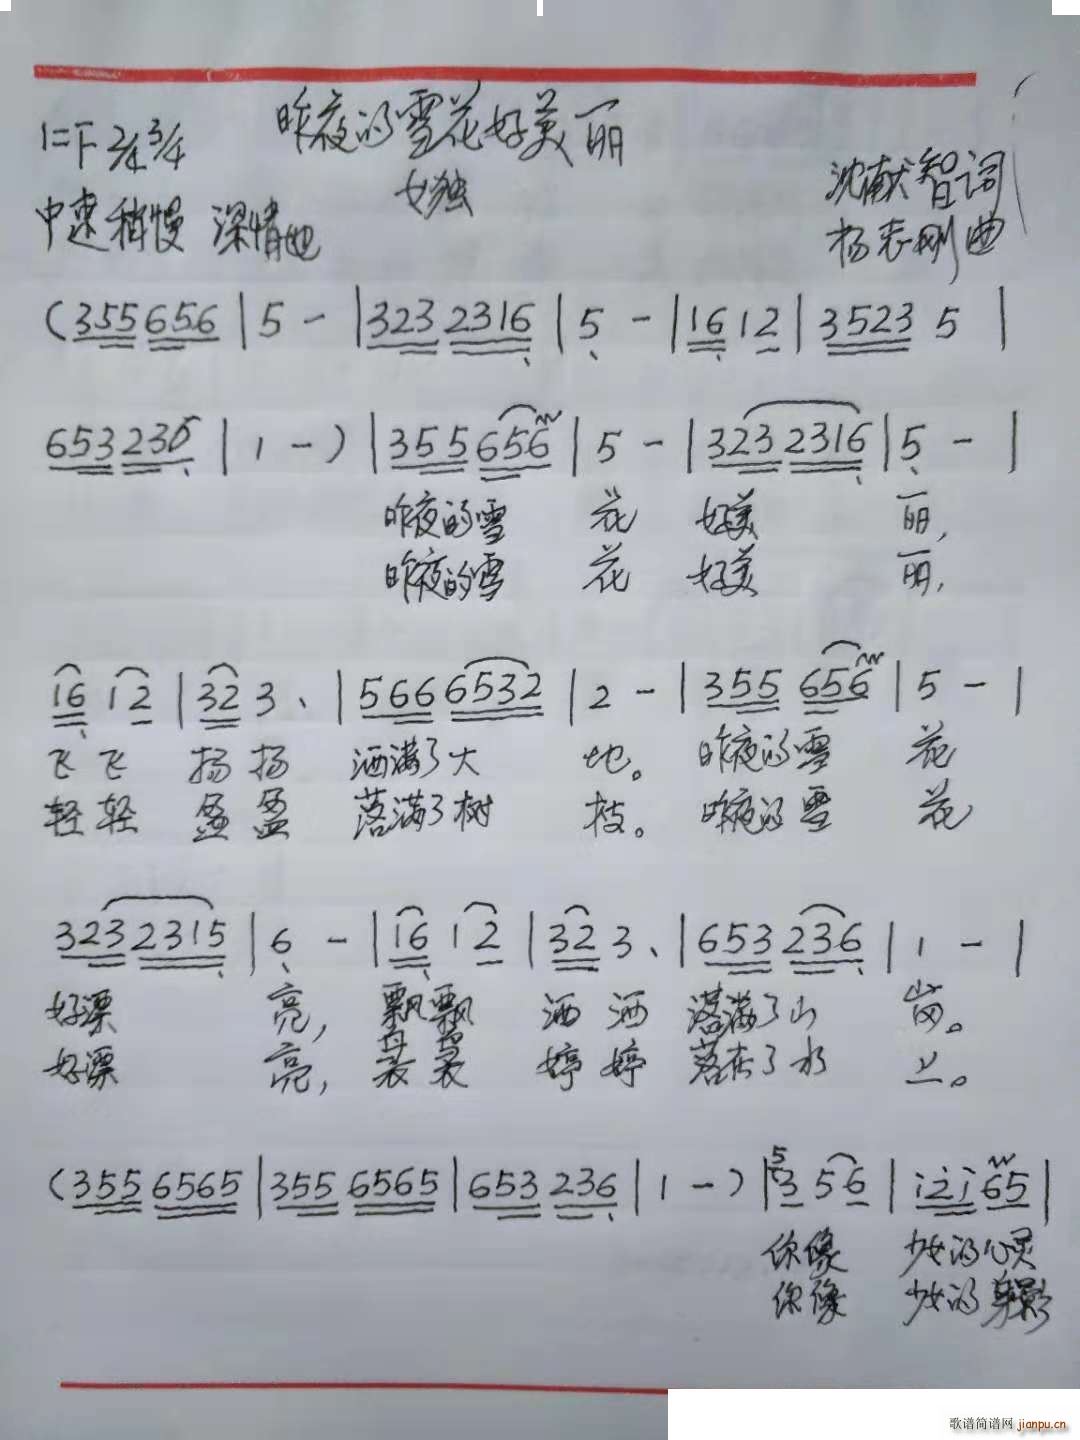 昨夜的雪花好美丽
1=F 2/4 3/4
女独
沈献智词
中速稍慢 深情地
杨志刚曲
(355 656 | 5 - | 323 2316 | 5 - | 16 12 | 3523 5 |
653 236 | 1 - ) | 355 656 | 5 - | 323 2316 | 5 - |
昨夜的雪 花 好美 丽,
昨夜的雪 花 好美 丽,
16 12 | 32 3. | 566 6532 | 2 - | 355 656 | 5 - |
飞飞 扬扬 洒满了大 地。 昨夜的雪 花
轻轻 盈盈 落满了树 枝。 昨夜的雪 花
323 2315 | 6 - | 16 12 | 32 3. | 653 236 | 1 - |
好漂 亮, 飘飘 洒洒 落满了山 岗。
好漂 亮, 袅袅 婷婷 落在了水 上。
(355 6565 | 355 6565 | 653 236 | 1 - ) | 5 3 56 | i2i 65 |
你像 少女的心灵
你像 少女的身影
歌谱简谱网 jianpu.cn